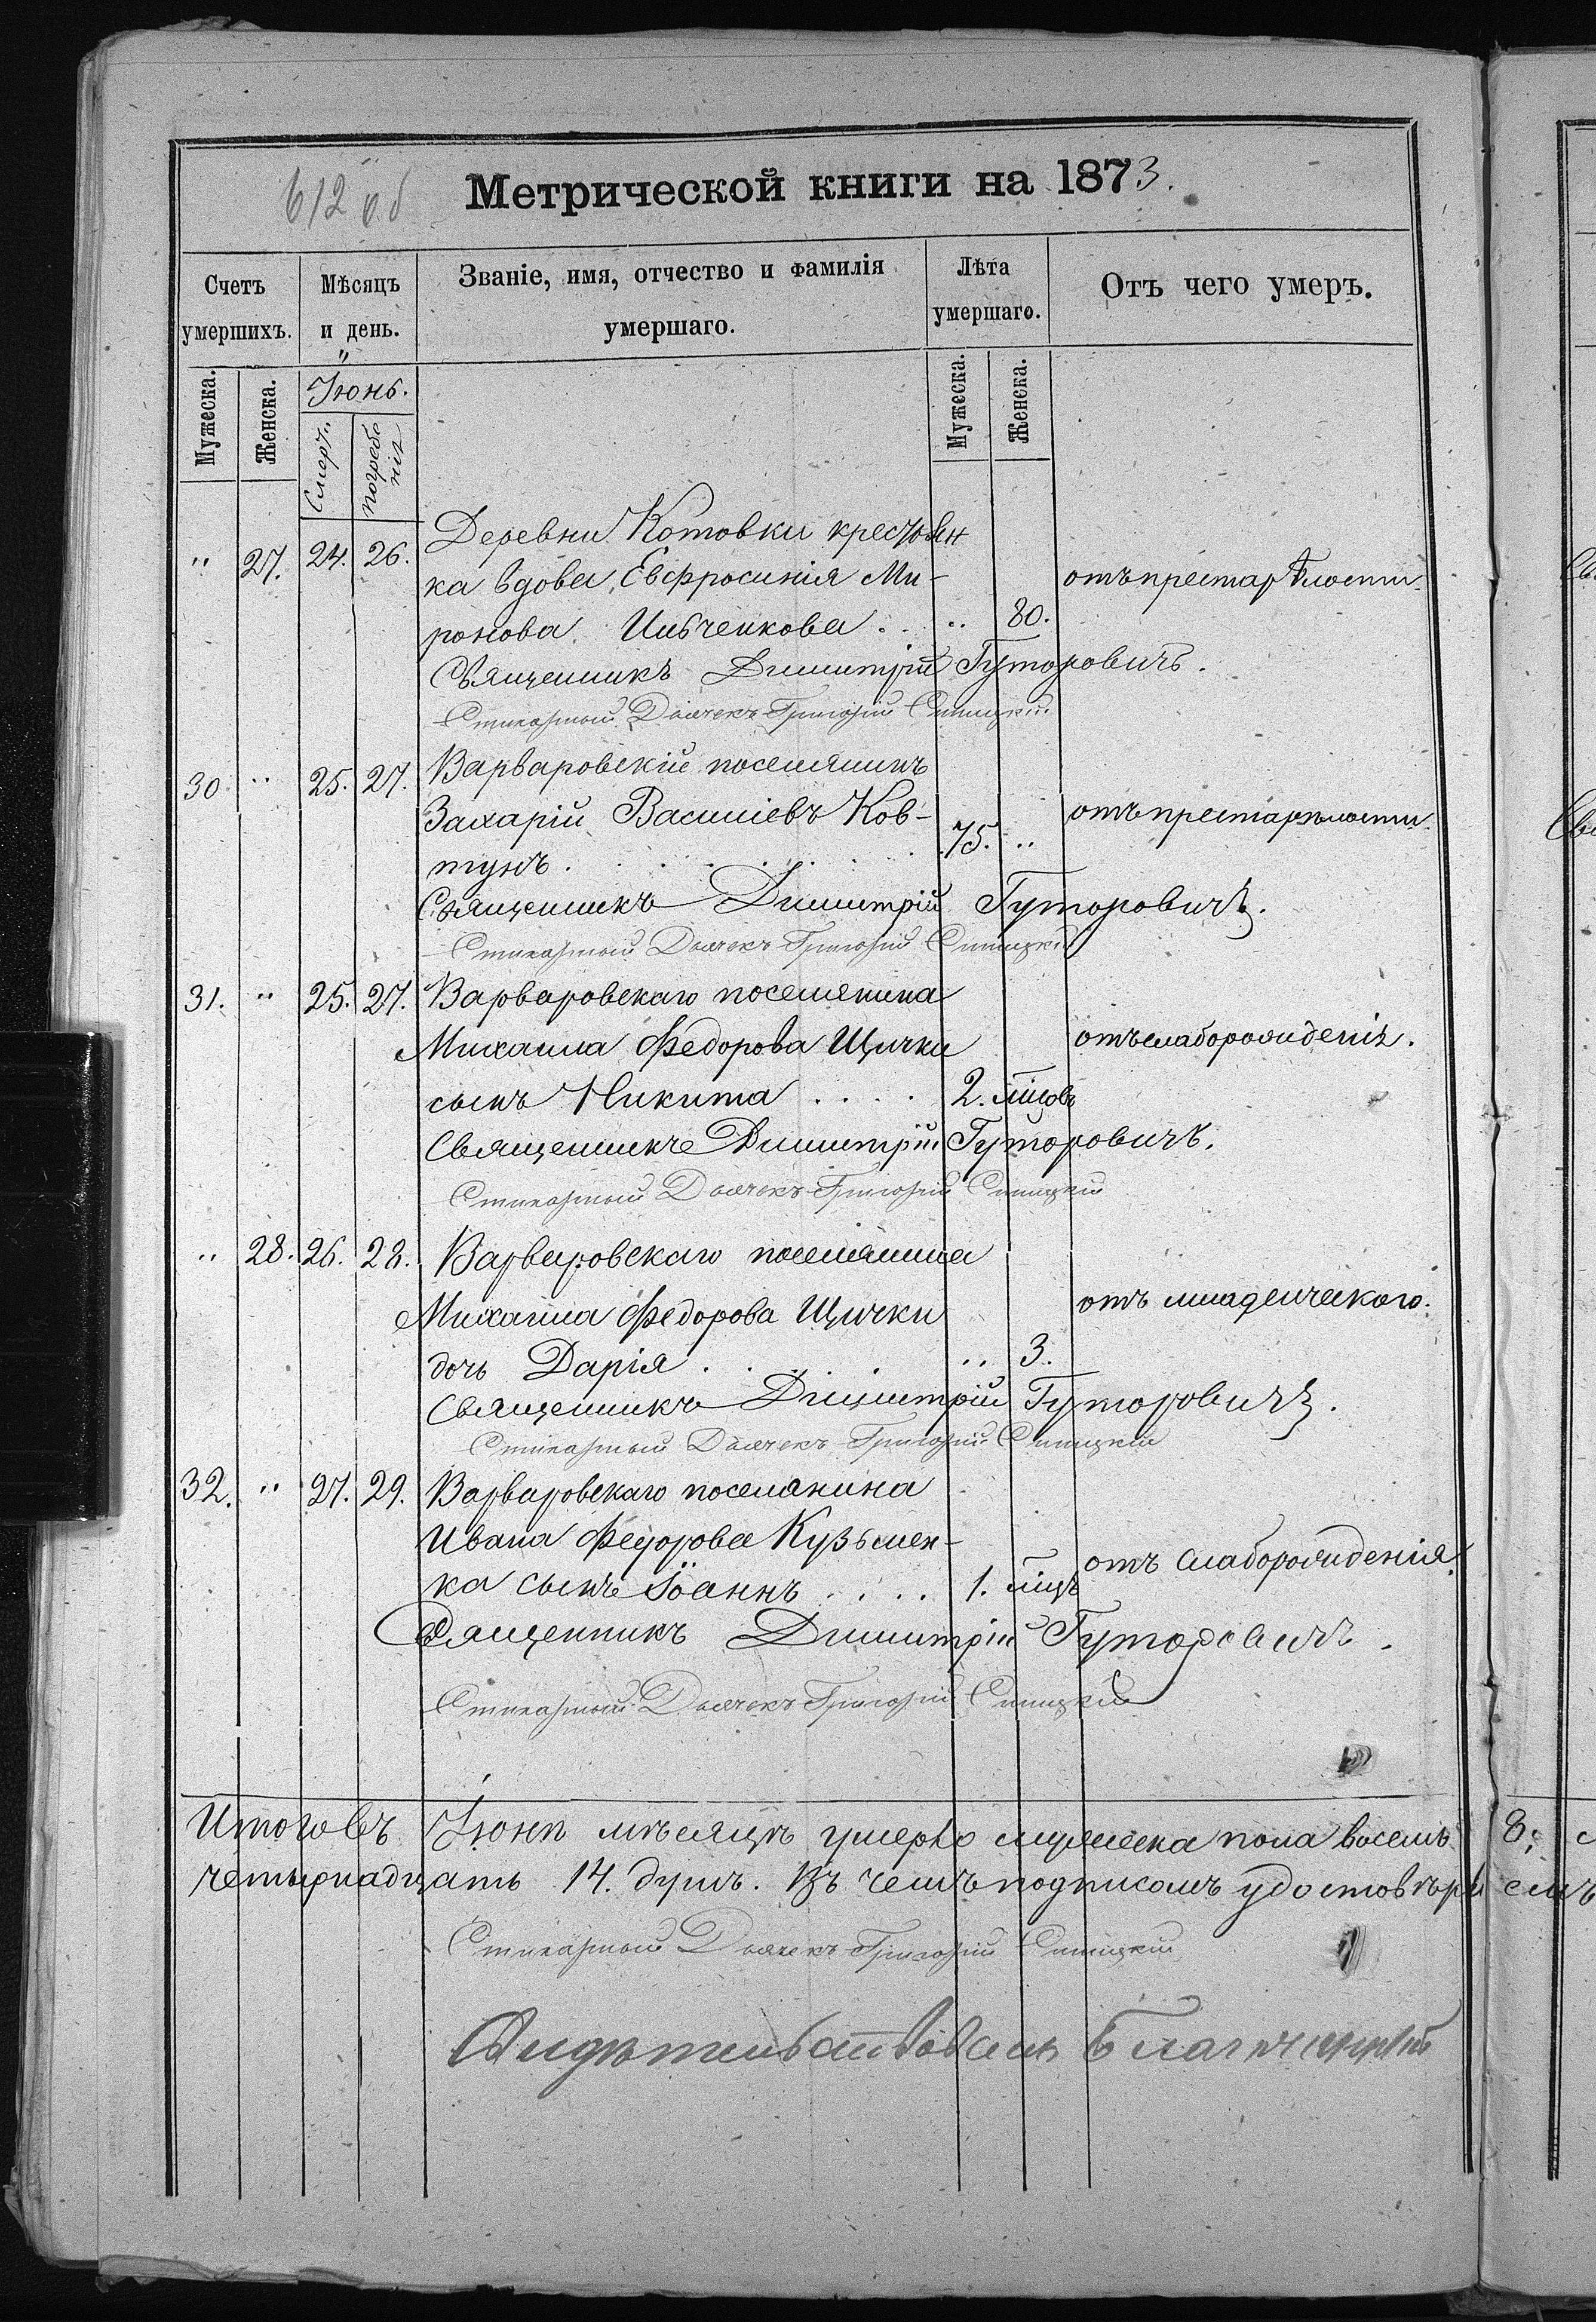 612 об
Метрической книги на 1873.
Счетъ умершихъ.
Мѣсяцъ и день.
Званіе, имя, отчество и фамилія умершаго.
Лѣта умершаго.
Отъ чего умеръ.
Мужеска. Женска.
Іюнь.
Смерт. погребенія
Мужеска. Женска.
Деревни Котовки крестьян
" 27. 24. 26.
ка вдова Евфросинія Ми- отъ престарѣлости
ронова Ильченкова . . " 80.
Священникъ Димитрій Гуторовичъ.
Стихарный Дьячекъ Григорій
30 " 25. 27. Варваровскій поселянинъ
Захарій Василіевъ Ков- отъ престарѣлости
тунъ . . . . . . . 75. "
Священникъ Димитрій Гуторовичъ.
Стихарный Дьячекъ Григорій
31. " 25. 27. Варваровскаго поселянина
Михаила Федорова Щички отъ слаборожденія.
сынъ Никита . . . . 2. мцовъ
Священникъ Димитрій Гуторовичъ.
Стихарный Дьячекъ Григорій
" 28. 26. 28. Варваровскаго поселянина
Михаила Федорова Щички отъ младенческаго.
дочь Дарія . . . . " 3.
Священникъ Димитрій Гуторовичъ.
Стихарный Дьячекъ Григорій
32. " 27. 29. Варваровскаго поселянина
Ивана Федорова Кузьмен-
ка сынъ Іоаннъ . . . . 1. мцъ отъ слаборожденія.
Священникъ Димитрій Гуторовичъ.
Стихарный Дьячекъ Григорій
Итого въ Іюнѣ мѣсяцѣ умерло мужеска пола восемь 8;
четырнадцать 14. душъ. Въ чемъ подписомъ удостовѣри емъ
Стихарный Дьячекъ Григорій
Свидѣтельствовалъ Благочинный